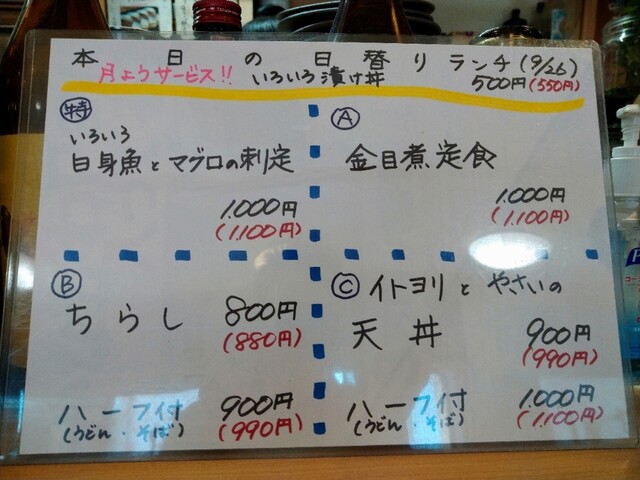 本日の日替りランチ(9/26)
月ようサービス!! いろいろ漬け丼 500円(550円)
特
いろいろ
白身魚とマグロの刺定
1.000円
(1.100円)
A
金目煮定食
1.000円
(1.100円)
B
ちらし 800円
(880円)
ハーフ付 900円
(うどん・そば) (990円)
C イトヨリとやさいの
天丼 900円
(990円)
ハーフ付 1.000円
(うどん・そば) (1.100円)